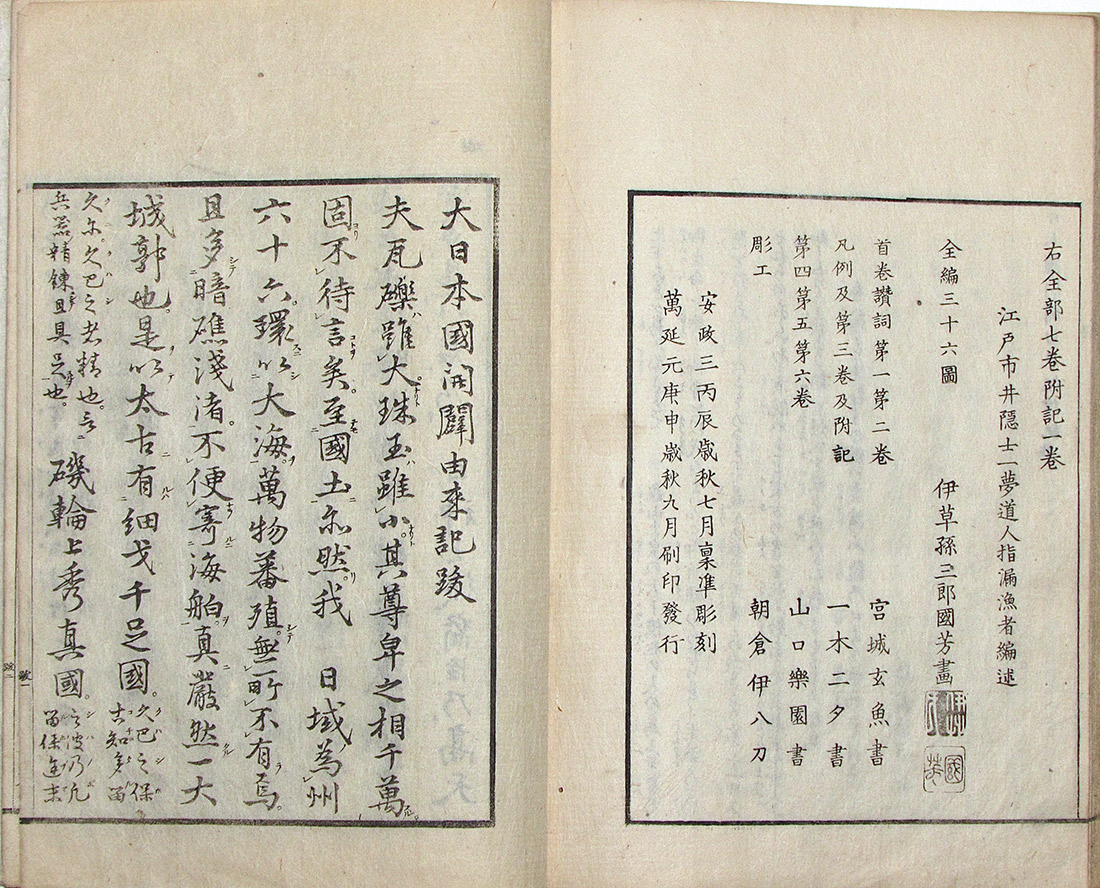 右全部七卷附記一卷
江戸市井隠士一夢道人指漏漁者編述
全編三十六圖 伊草孫三郎國芳畫
首卷讃詞第一第二卷 宮城玄魚書
凡例及第三卷及附記 一木二夕書
第四第五第六卷 山口樂園書
彫工 朝倉伊八刀
安政三丙辰歳秋七月稟準彫刻
萬延元庚申歳秋九月刷印發行
大日本國開闢由來記跋
夫瓦礫雖大珠玉雖小其尊卑之相千萬
固不待言矣至國土亦然我 日域為州
六十六環以大海萬物蕃殖無所不有焉
且多暗礁淺渚不便寄海舶真嚴然一大
城郭也是以太古有細戈千足國
久巴之保
古知多畄
久尓久巴之者精也言
兵器精錬且具足也
磯輪上秀真國
之波乃凡
畄保通末